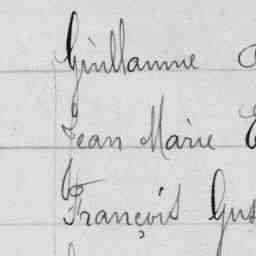 Guillaume
Jean Marie
François Gus